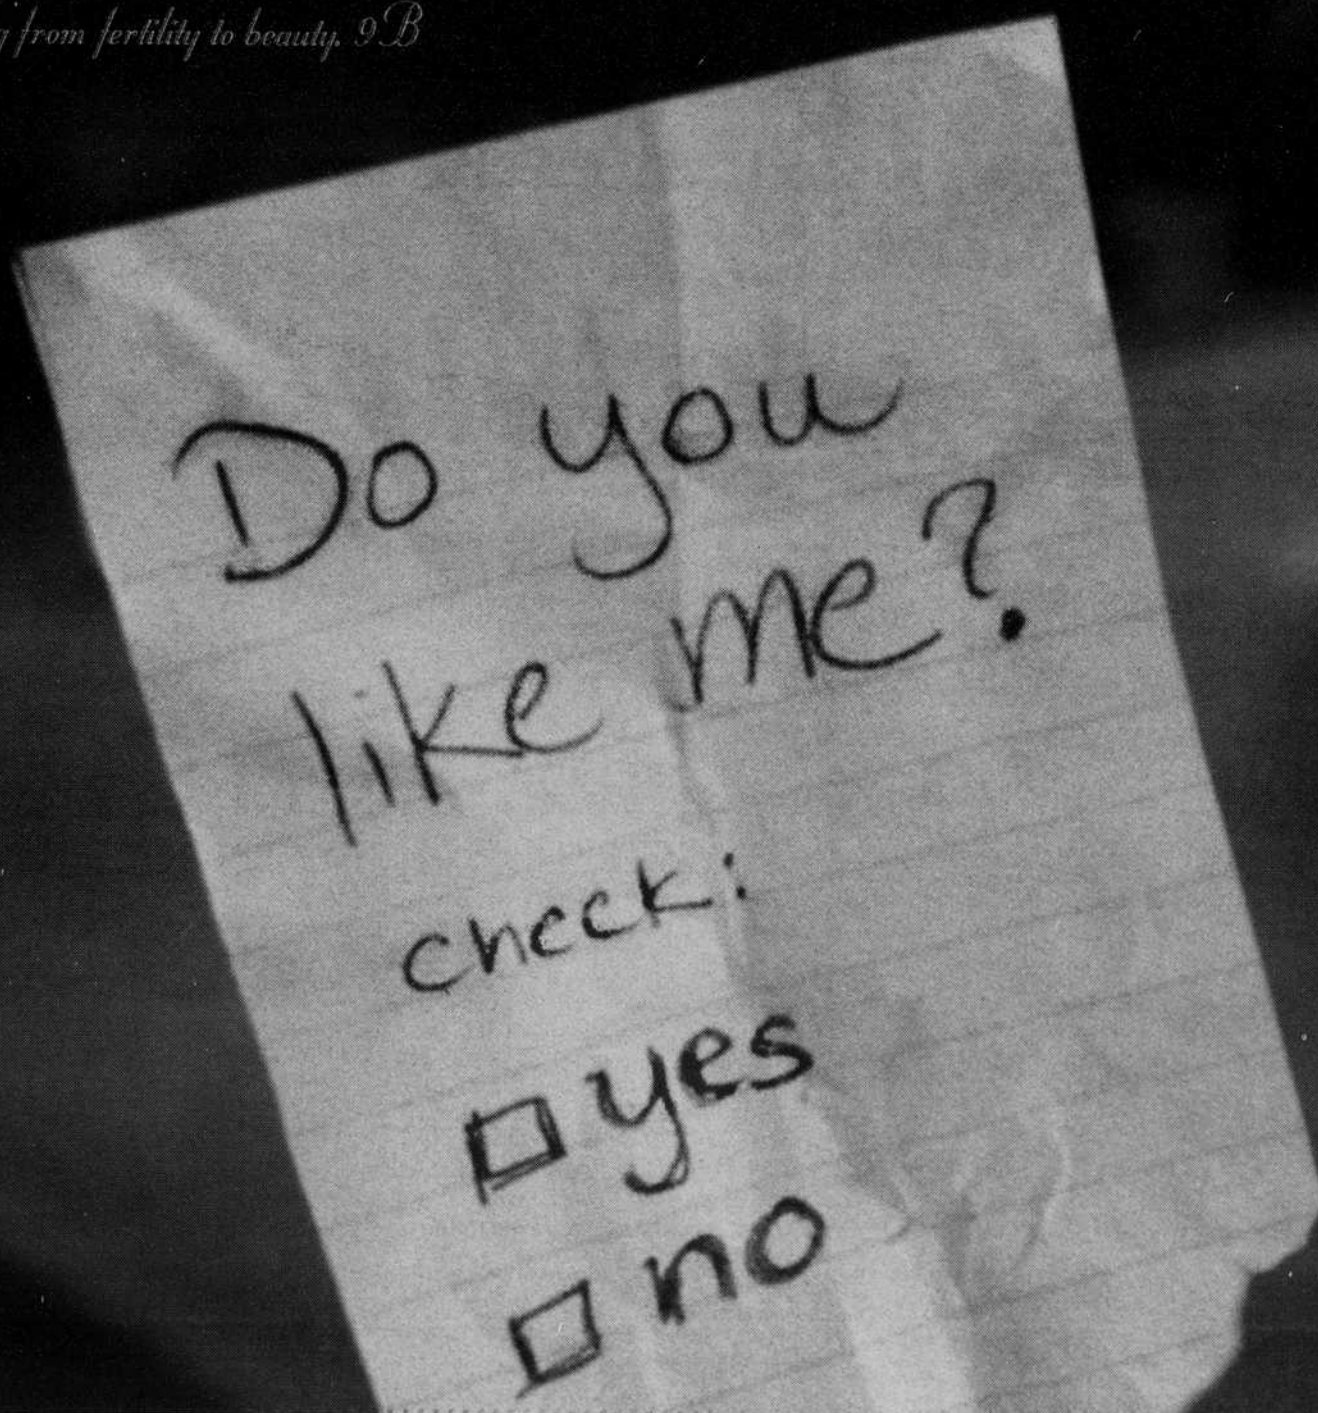 from fertility to beauty. 9B
Do you
like me?
check:
yes
no